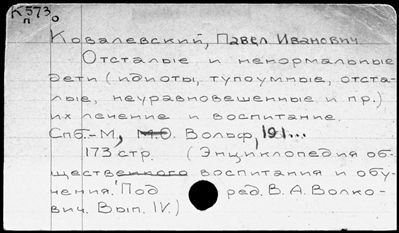 К573
п
Ковалевский, Павел Иванович
Отсталые и ненормальные
дети (идиоты, тупоумные, отста-
лые, неуравновешенные и пр.)
их лечение и воспитание.
Спб.-М., М.О. Вольф, 191...
173 стр. (Энциклопедия об-
щественного воспитания и обу-
чения. Под ред. В. А. Волко-
вич. Вып. IV.)